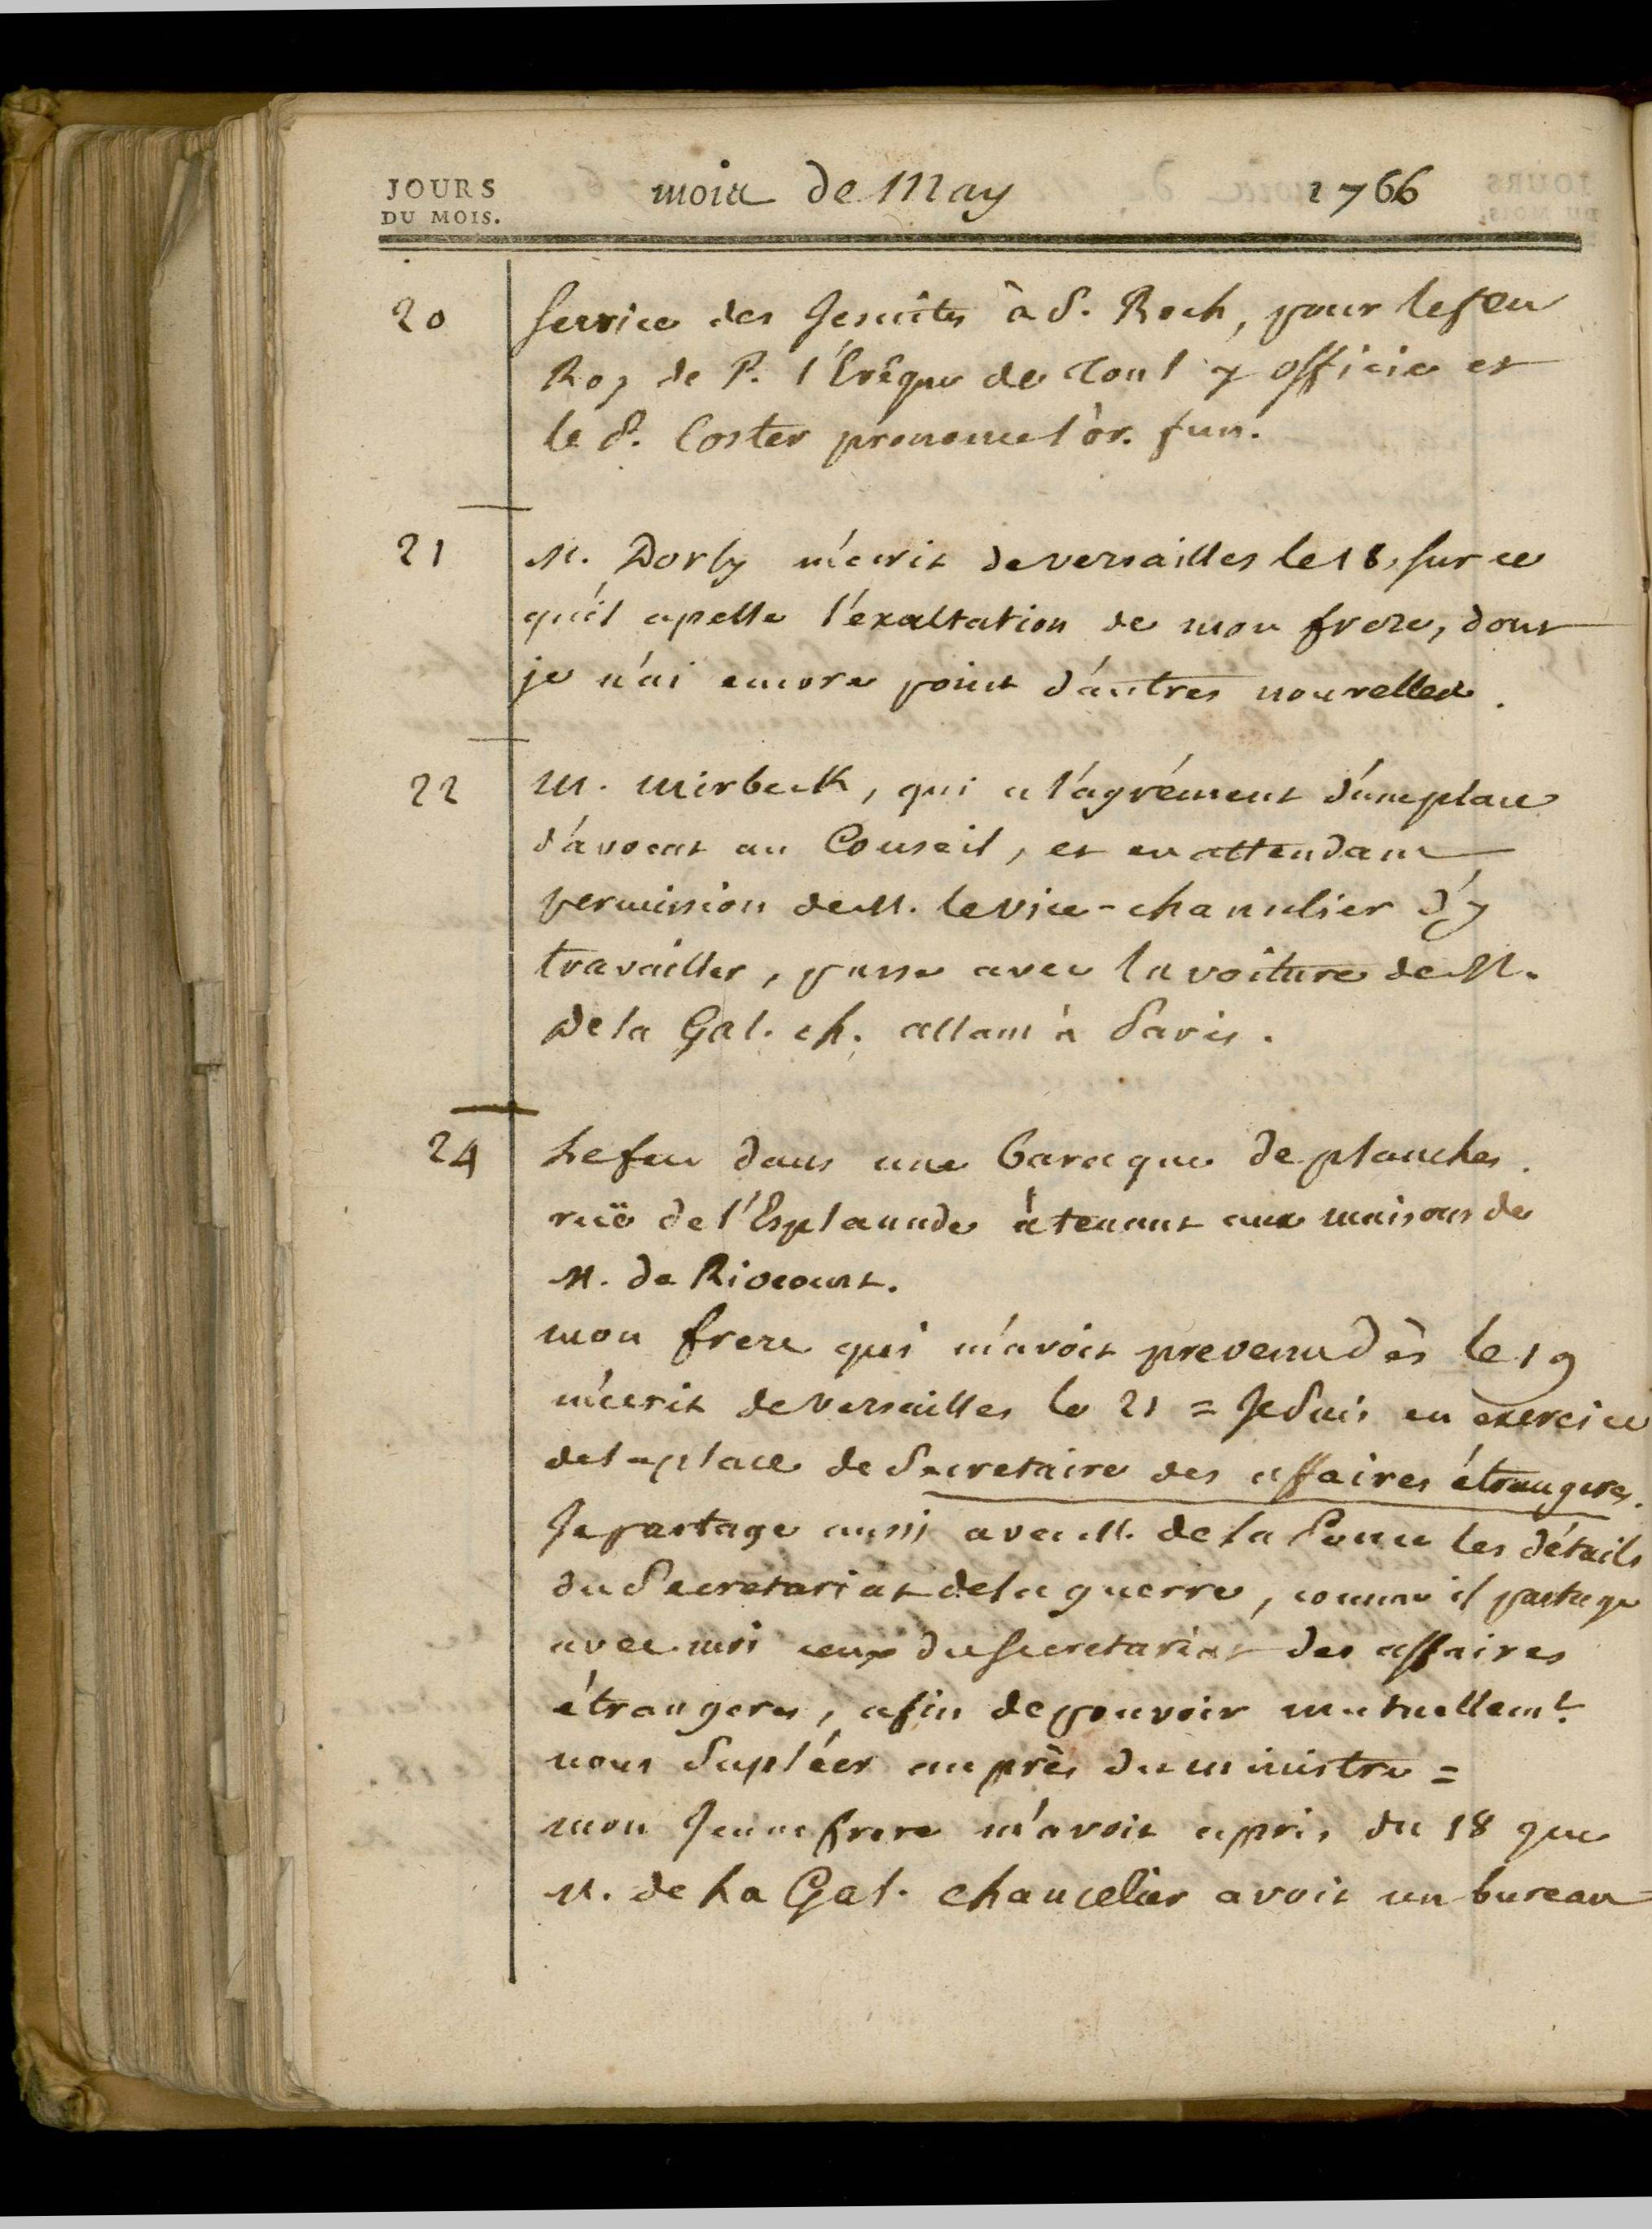 JOURS
DU MOIS.
mois de May 1766
20 Service des Jesuites à S. Roch, pour le feu
Roy de P. l'Evêque de Toul y officie et
le P. Coster prononce l'or. fun.
21 M. Dorly m'écrit de versailles le 18, sur ce
qu'il apelle l'exaltation de mon frere, dont
je n'ai encore point d'autres nouvelles.
22 M. Mirbeck, qui a l'agrément d'une place
d'avocat au Conseil, et en attendant
permission de M. le vice-chancelier d'y
travailler, passe avec la voiture de M.
De la Gal. ch. allant à Paris.
24 Le feu dans une baraque de planches.
ruë de l'Esplanade àtenant aux maisons de
M. de Riocourt.
mon frere qui m'avoit prevenu dès le 19
m'écrit de versailles le 21 = Je suis en exercice
de la place de Secretaire des affaires étrangeres.
Je partage aussi avec M. de la Ponce les détails
du Secretariat de la guerre, comme il partage
avec moi ceux du secretariat des affaires
étrangeres, afin de pouvoir mutuellemt.
nous supléer auprès du ministre =
mon Jeune frere m'avoit apris du 18 que
M. de La Gal. chancelier avoit un bureau